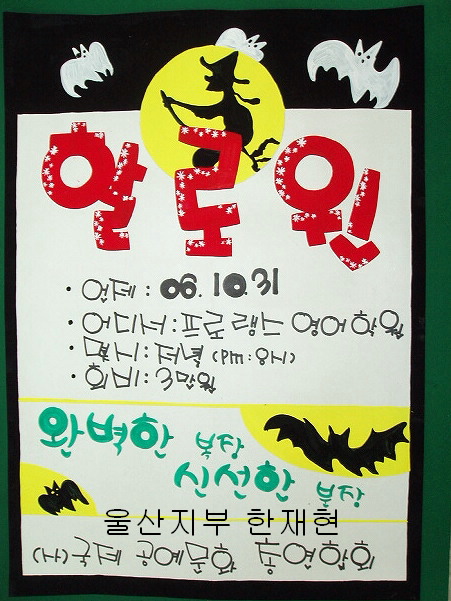 할로윈
· 언제 : 06.10.31
· 어디서 : 프로램스 영어학원
· 몇시 : 저녁 (pm : 8시)
· 회비 : 3만원
완벽한 복장
신선한 분장
울산지부 한재현
(사)국제 공예문화 총연합회